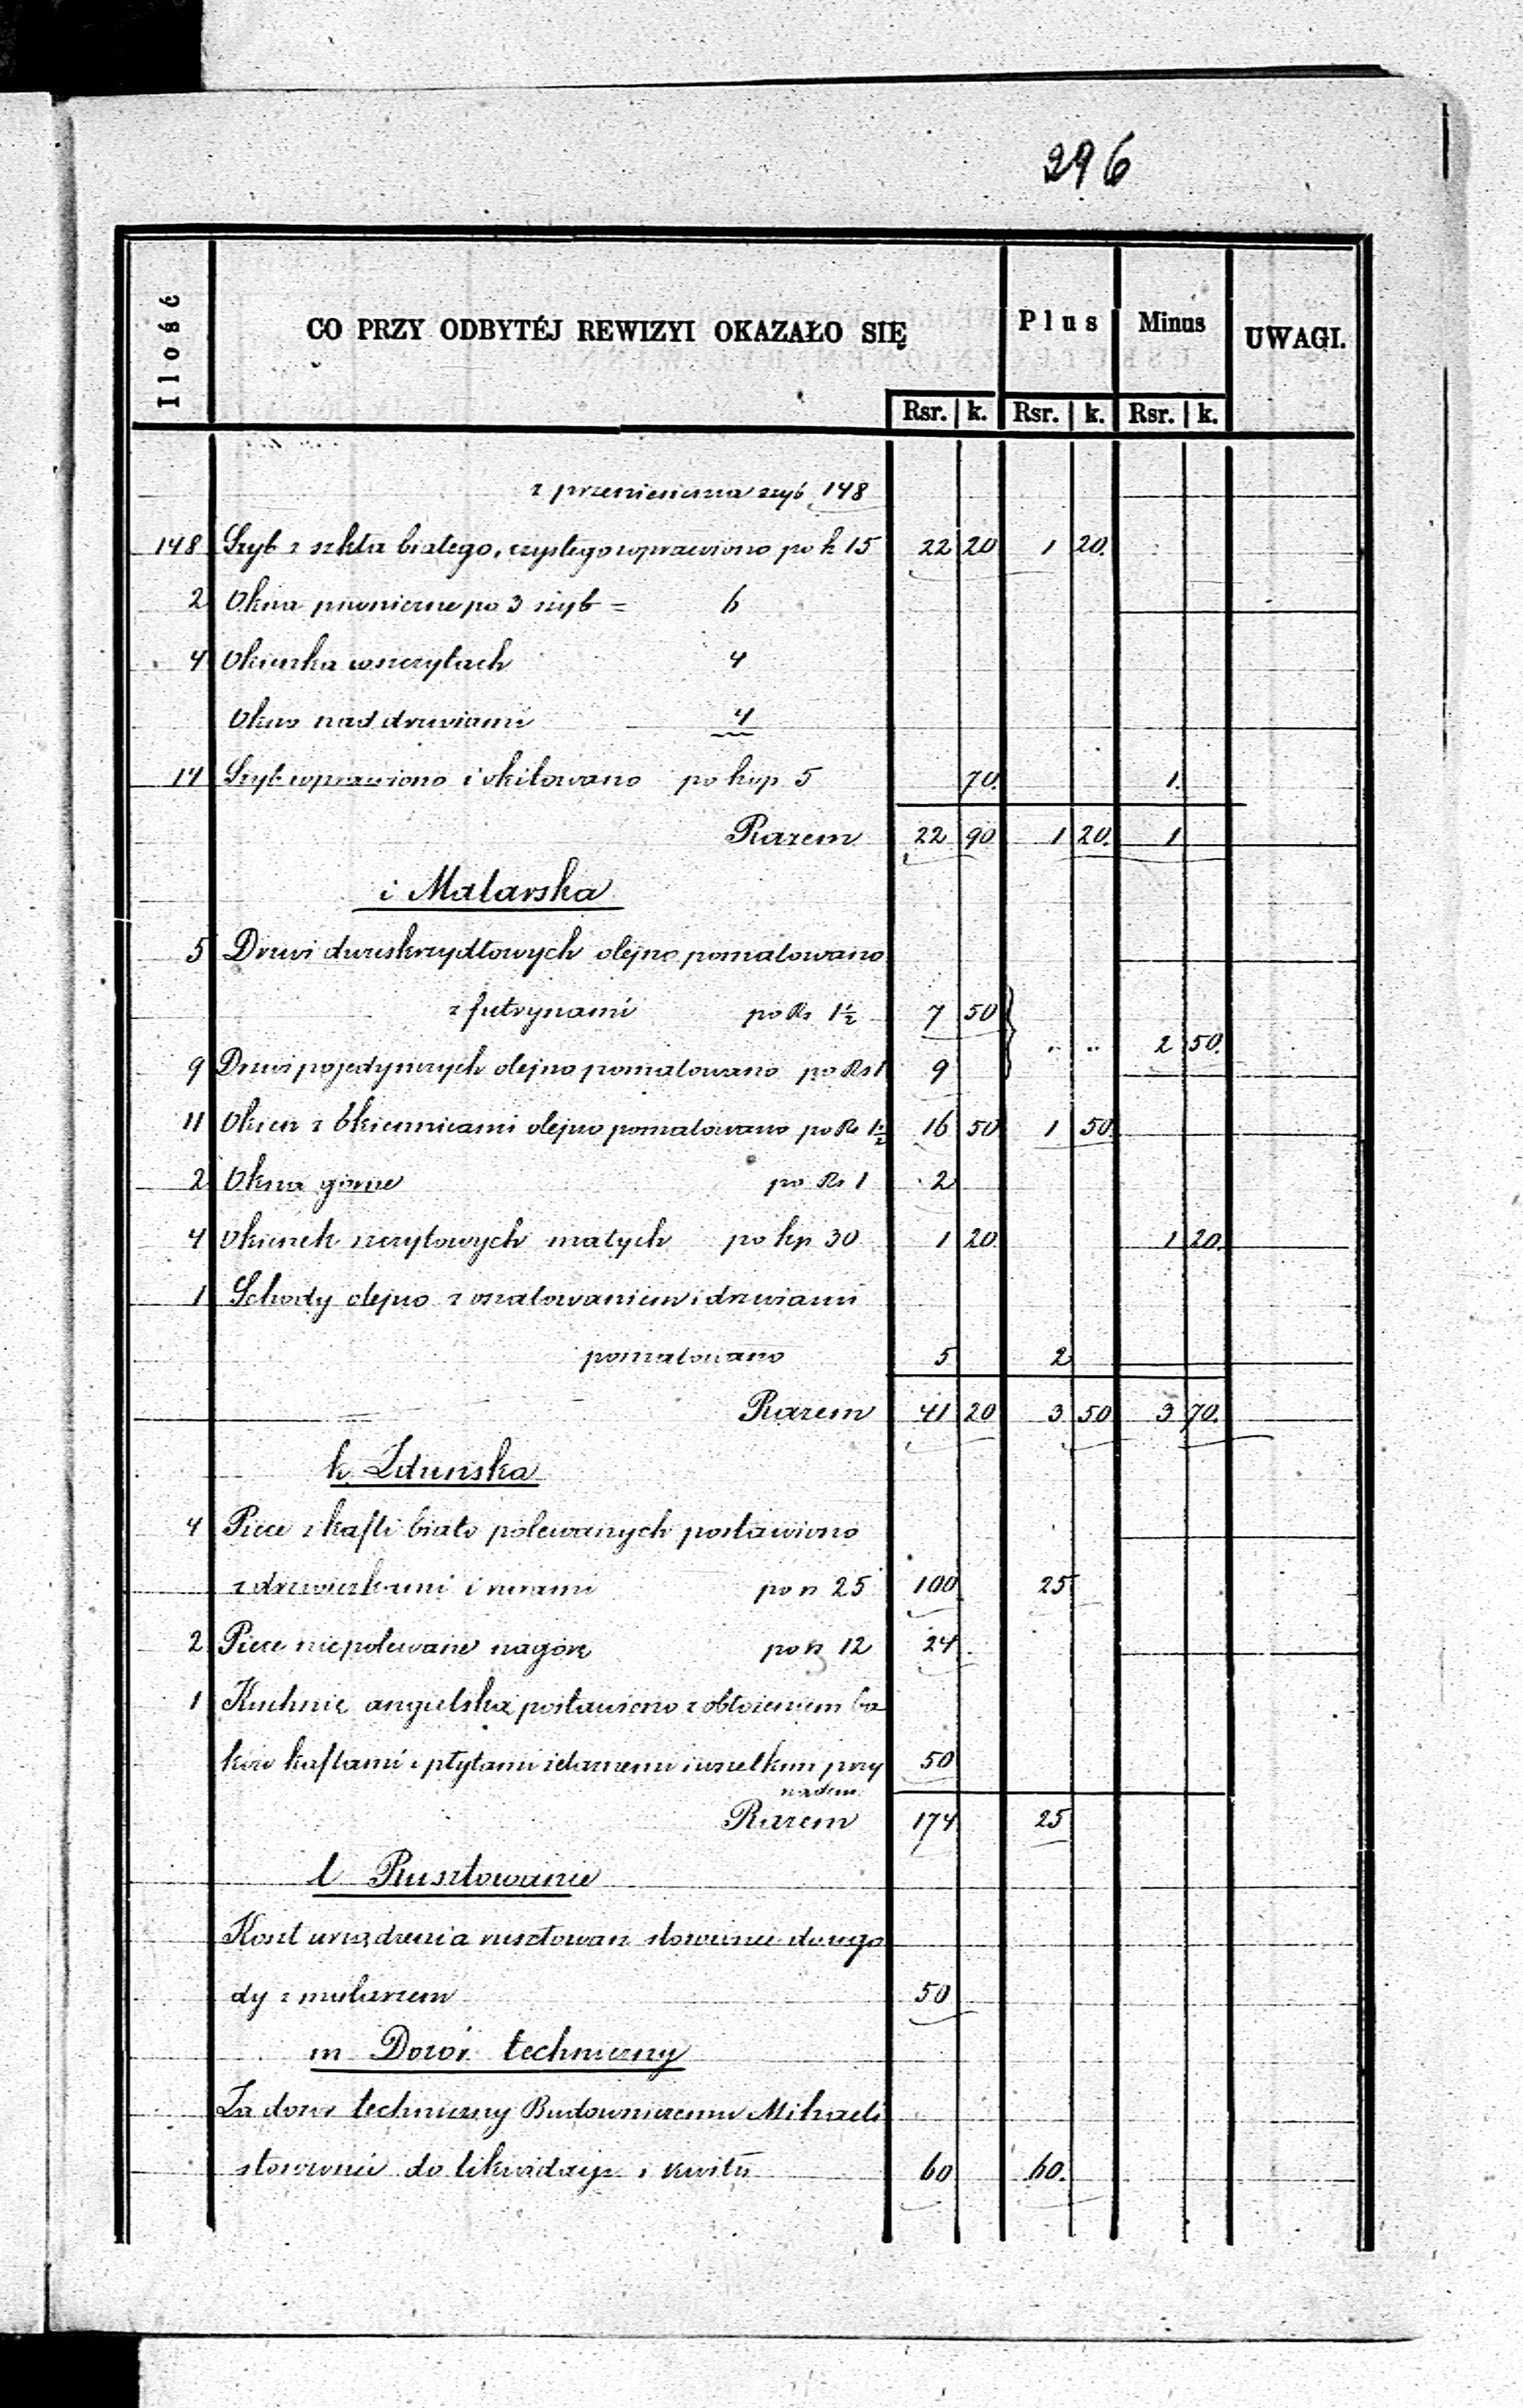 296
Ilość CO PRZY ODBYTÉJ REWIZYI OKAZAŁO SIĘ Plus Minus UWAGI.
Rsr. k. Rsr. k. Rsr. k.
z przeniesienia szyb 148
148 Szyb z szkła białego, czystego wprawiono po k 15 22 20 1 20.
2 Okna piwniczne po 3 szyb = 6
4 Okienka w szczytach 4
Okno nad drzwiami 4
14 Szyb wprawiono i okitowano po kop 5 70. 1.
Razem 22 90 1 20. 1
i Malarska
5 Drzwi dwuskrzydłowych olejno pomalowano
z futrynami po Rs 1½ 7 50
2 50.
9 Drzwi pojedynczych olejno pomalowano po Rs 1 9
11 Okien z Okiennicami olejno pomalowano po Rs 1½ 16 50 1 50
2 Okna górne po Rs 1 2
4 Okienek szczytowych małych po kp 30 1 20. 1 20.
1 Schody olejno z oszalowaniem i drzwiami
pomalowano 5 2
Razem 41 20 3 50 3 70.
k. Zduńska
4 Piece z kafli biało polewanych postawiono
z drzwiczkami i rurami po rs 25 100 25
2 Piece niepolewane na górze po rs 12 24
1 Kuchnię angielską postawiono z obłożeniem bo
ków kaflami z płytami żelaznemi i wszelkim przy 50
rządem
Razem 174 25
l Rusztowanie
Koszt urządzenia rusztowań stosownie do ugo
dy z mularzem 50
m Dozór techniczny
Za dozór techniczny Budowniczemu
stosownie do likwidacyi i kwitu 60 60.